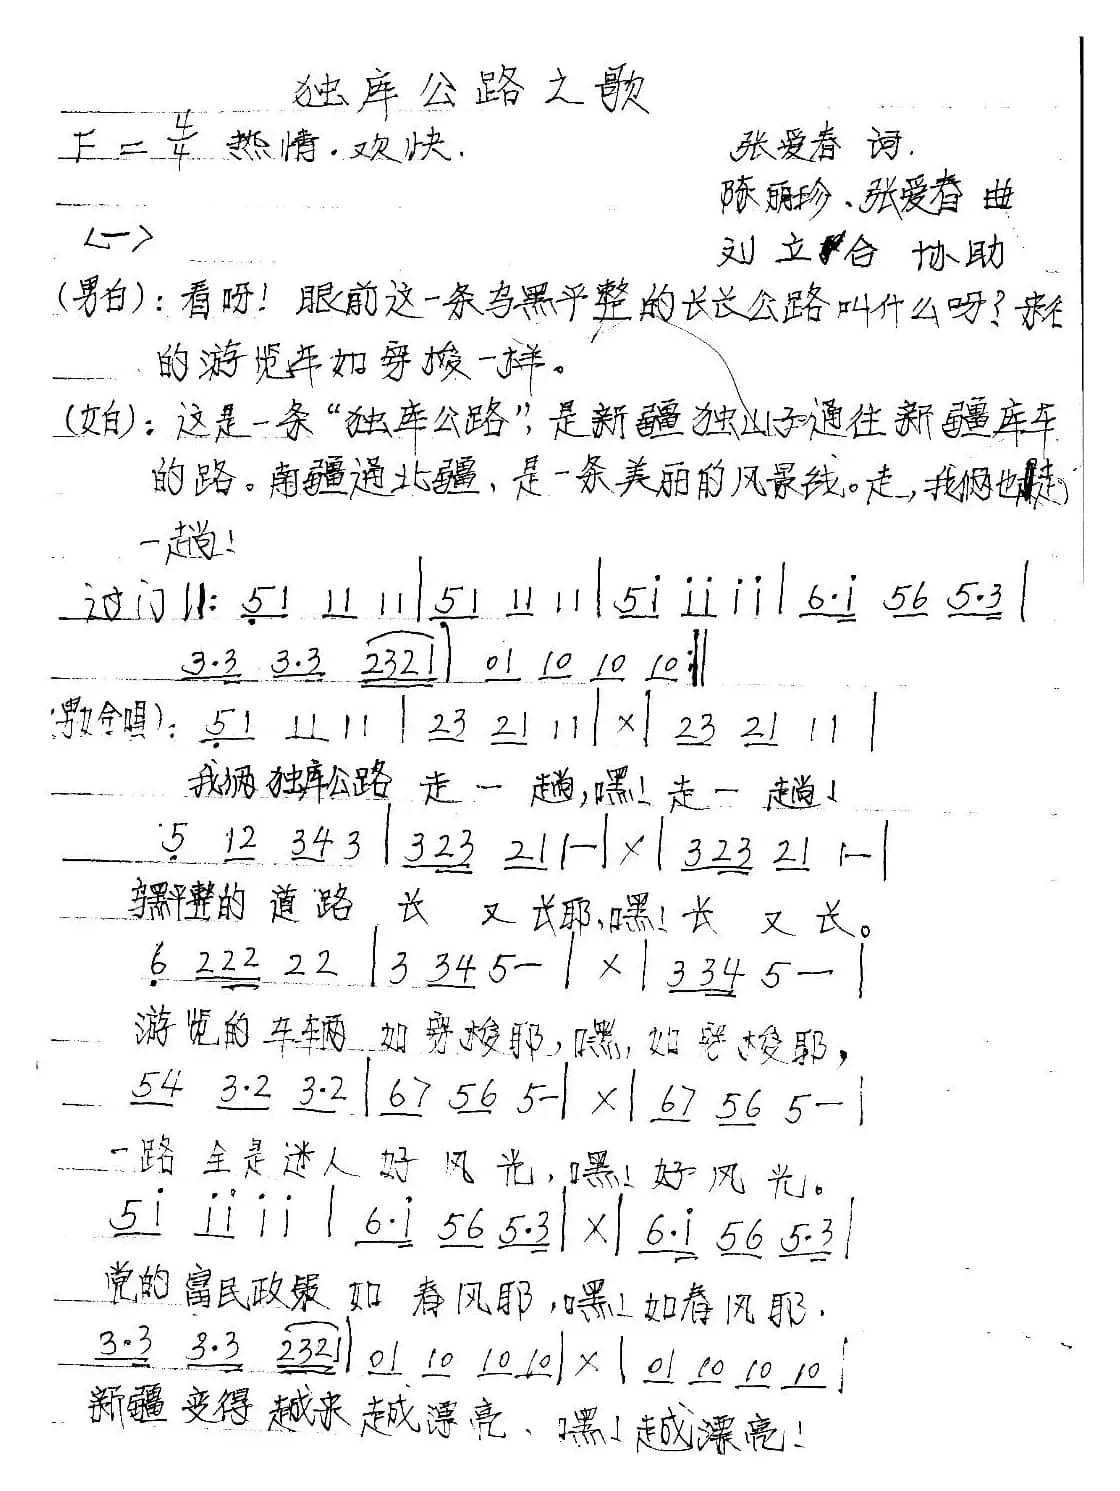 独库公路之歌
F = 4/4 热情.欢快.
张爱春 词.
陈丽珍、张爱春 曲
<一>
刘立合 协助
(男白): 看呀! 眼前这一条乌黑平整的长长公路叫什么呀? 来往
的游览车如穿梭一样。
(女白): 这是一条“独库公路”, 是新疆独山子通往新疆库车
的路。南疆通北疆, 是一条美丽的风景线。走, 我俩也走
一趟!
过门 ‖: 5̣1 11 11 | 5̣1 11 11 | 5i ii ii | 6·i 56 5·3 |
3·3 3·3 2321 | 01 10 10 10 :‖
(男女合唱): 5̣1 11 11 | 23 21 11 | × | 23 21 11 |
我俩独库公路 走一趟, 嘿! 走一趟!
5̣ 12 34 3 | 323 21 1— | × | 323 21 1— |
乌黑平整的道路 长又长耶, 嘿! 长又长。
6̣ 222 22 | 3 34 5— | × | 334 5— |
游览的车辆 如穿梭耶, 嘿, 如穿梭耶,
54 3·2 3·2 | 67 56 5— | × | 67 56 5— |
一路全是迷人好风光, 嘿! 好风光。
5i ii ii | 6·i 56 5·3 | × | 6·i 56 5·3 |
党的富民政策 如春风耶, 嘿! 如春风耶.
3·3 3·3 2321 | 01 10 10 10 | × | 01 10 10 10 |
新疆变得越来越漂亮、嘿! 越漂亮!